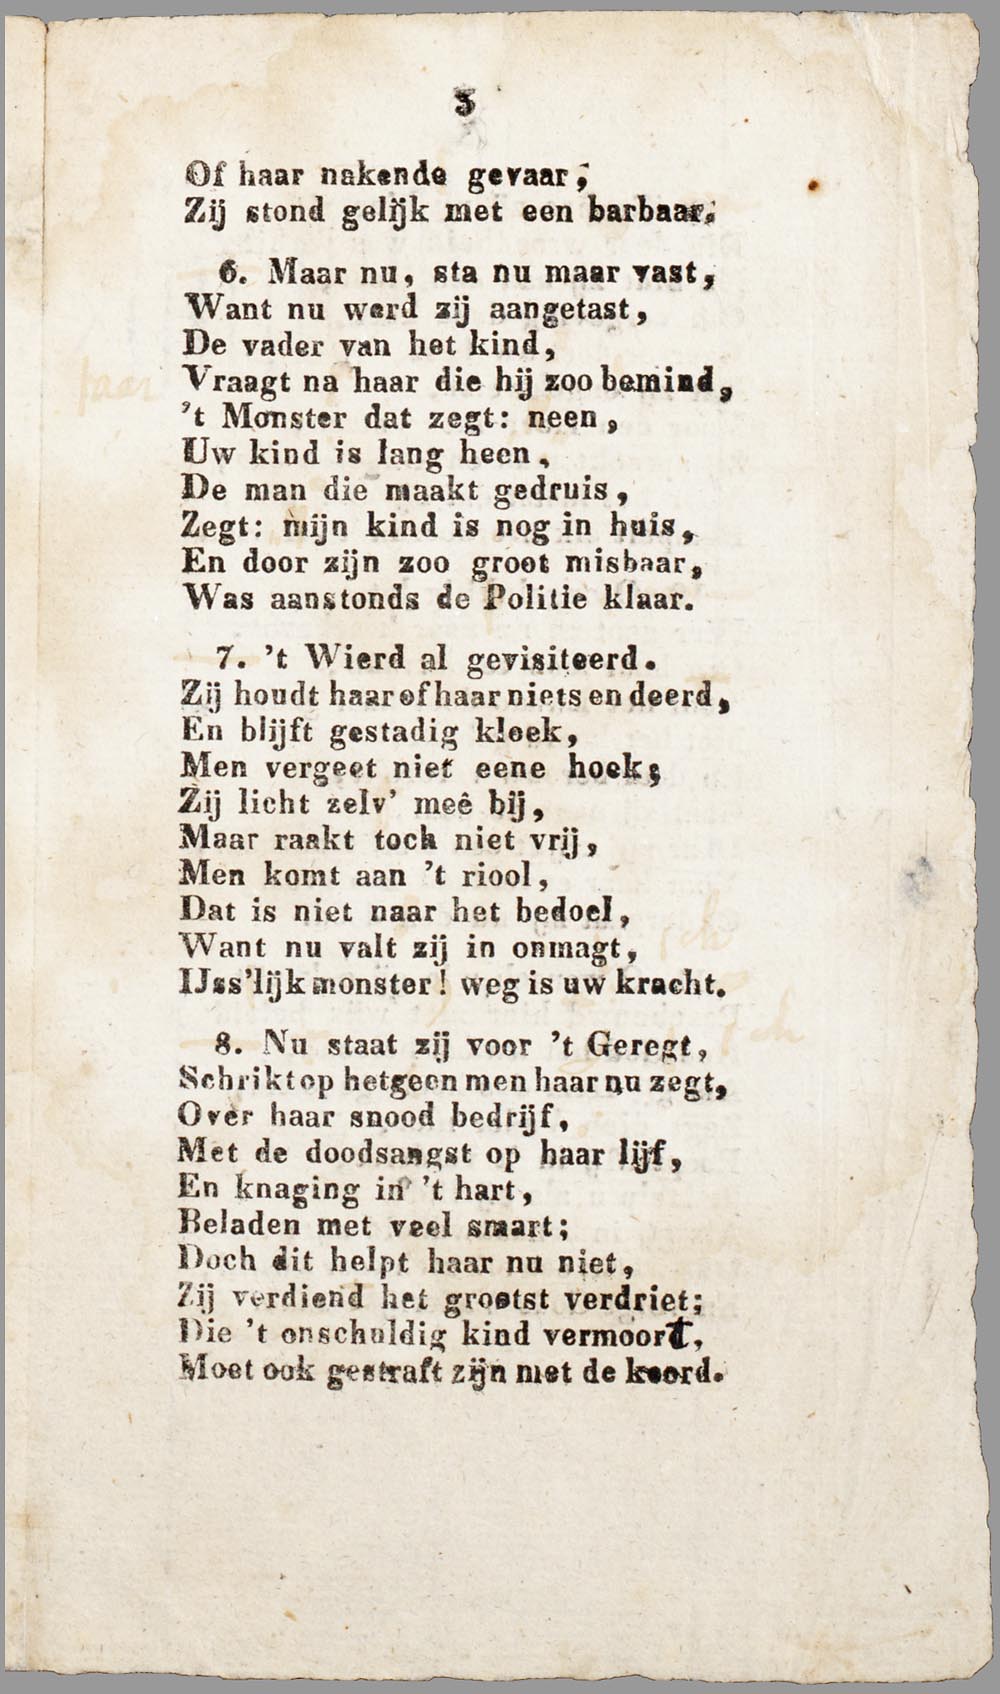 3
Of haar nakende gevaar;
Zij stond gelijk met een barbaar.
6. Maar nu, sta nu maar vast,
Want nu werd zij aangetast,
De vader van het kind,
Vraagt na haar die hij zoo bemind,
't Monster dat zegt: neen,
Uw kind is lang heen,
De man die maakt gedruis,
Zegt: mijn kind is nog in huis,
En door zijn zoo groot misbaar,
Was aanstonds de Politie klaar.
7. 't Wierd al gevisiteerd.
Zij houdt haar of haar niets en deerd,
En blijft gestadig kloek,
Men vergeet niet eene hoek;
Zij licht zelv' meê bij,
Maar raakt toch niet vrij,
Men komt aan 't riool,
Dat is niet naar het bedoel,
Want nu valt zij in onmagt,
IJss'lijk monster! weg is uw kracht.
8. Nu staat zij voor 't Geregt,
Schrikt op hetgeen men haar nu zegt,
Over haar snood bedrijf,
Met de doodsangst op haar lijf,
En knaging in 't hart,
Beladen met veel smart;
Doch dit helpt haar nu niet,
Zij verdiend het grootst verdriet;
Die 't onschuldig kind vermoort,
Moet ook gestraft zijn met de koord.